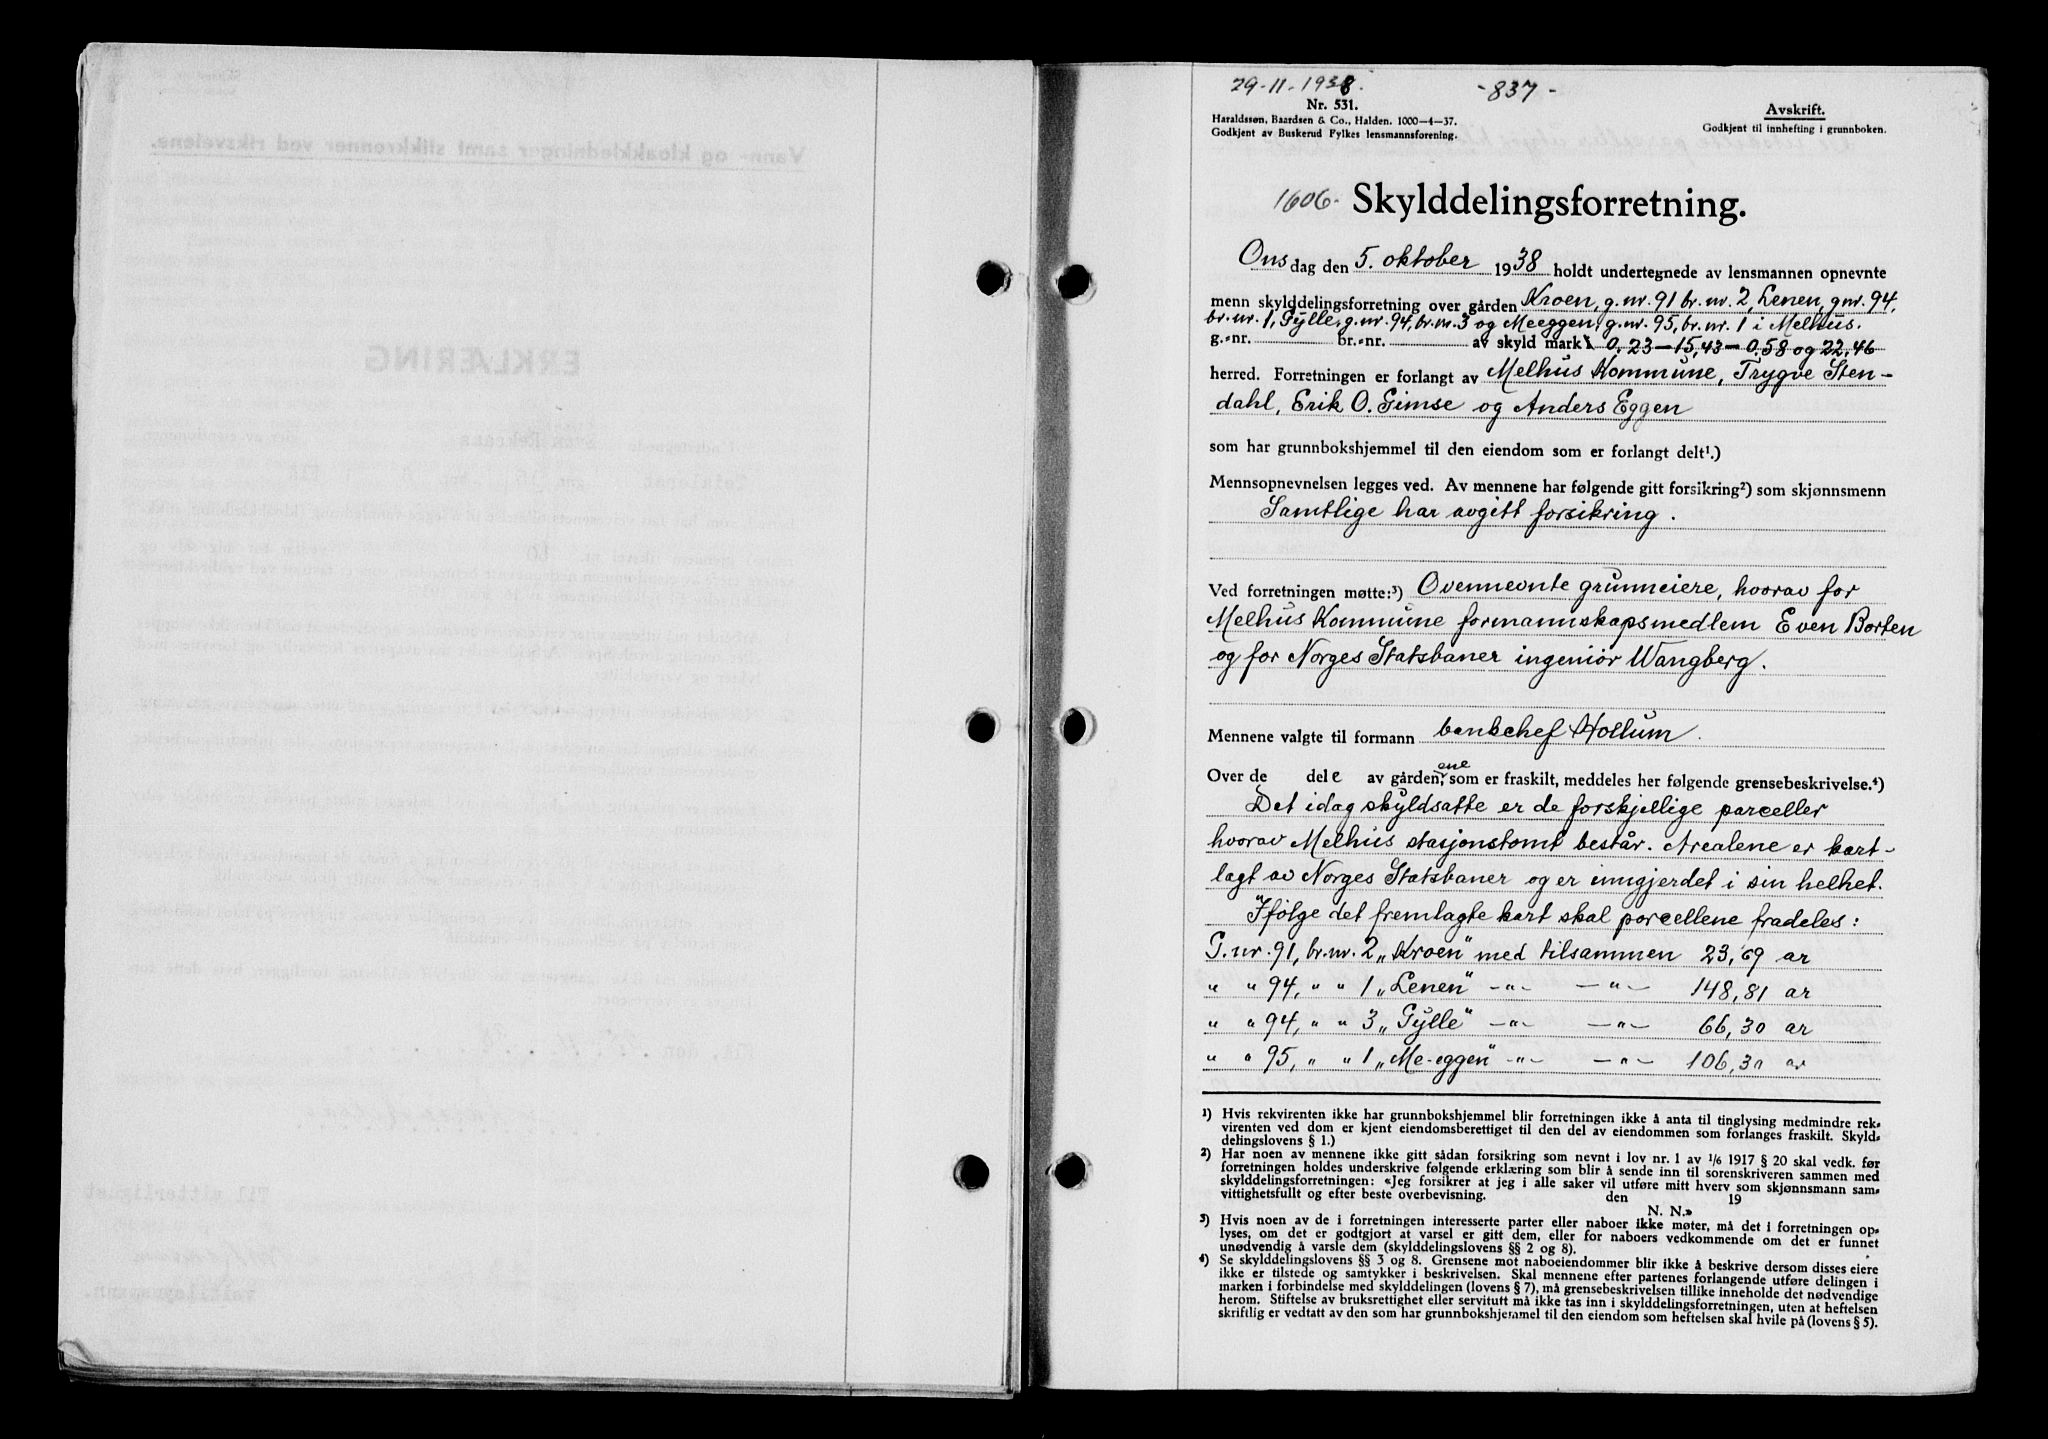 29-11-1938.
-837-
Nr. 531.
Haraldssøn, Baardsen & Co., Halden. 1000—4—37.
Godkjent av Buskerud Fylkes lensmannsforening.
Avskrift.
Godkjent til innhefting i grunnboken.
1606- Skylddelingsforretning.
Onsdag den 5. oktober 1938 holdt undertegnede av lensmannen opnevnte
menn skylddelingsforretning over gården Kroen, g.nr. 91 br.nr. 2, Lenen, gnr. 94,
br.nr. 1, Gylle, g.nr. 94, br.nr. 3 og Meeggen, g.nr. 95, br.nr. 1 i Melhus.
g.-nr. br.-nr. av skyld mark 0,23—15,43—0,58 og 22,46
herred. Forretningen er forlangt av Melhus Kommune, Trygve Sten-
dahl, Erik O. Gimse og Anders Eggen
som har grunnbokshjemmel til den eiendom som er forlangt delt¹.)
Mennsopnevnelsen legges ved. Av mennene har følgende gitt forsikring²) som skjønnsmenn
Samtlige har avgitt forsikring.
Ved forretningen møtte:³) Ovennevnte grunneiere, hvorav for
Melhus Kommune formannskapsmedlem Even Borten
og for Norges Statsbaner ingeniør Wangberg.
Mennene valgte til formann bankchef Hollum.
Over de dele av gårdenene som er fraskilt, meddeles her følgende grensebeskrivelse.⁴)
Det idag skyldsatte er de forskjellige parceller
hvorav Melhus stasjonstomt består. Arealene er kart-
lagt av Norges Statsbaner og er inngjerdet i sin helhet.
Ifølge det fremlagte kart skal parcellene fradeles:
G.nr. 91, br.nr. 2 „Kroen" med tilsammen 23,69 ar
" " 94, " " 1 „Lenen" —"— —"— 148,81 ar
" " 94, " " 3 „Gylle" —"— —"— 66,30 ar
" " 95, " " 1 „Me-eggen" —"— —"— 106,30 ar
¹) Hvis rekvirenten ikke har grunnbokshjemmel blir forretningen ikke å anta til tinglysing medmindre rek-
virenten ved dom er kjent eiendomsberettiget til den del av eiendommen som forlanges fraskilt. Skyld-
delingslovens § 1.)
²) Har noen av mennene ikke gitt sådan forsikring som nevnt i lov nr. 1 av 1/6 1917 § 20 skal vedk. før
forretningen holdes underskrive følgende erklæring som blir å sende inn til sorenskriveren sammen med
skylddelingsforretningen: «Jeg forsikrer at jeg i alle saker vil utføre mitt hverv som skjønnsmann sam-
vittighetsfullt og efter beste overbevisning. den 19
N. N.»
³) Hvis noen av de i forretningen interesserte parter eller naboer ikke møter, må det i forretningen op-
lyses, om det er godtgjort at varsel er gitt dem, eller for naboers vedkommende om det er funnet
unødvendig å varsle dem (skylddelingslovens §§ 2 og 8).
⁴) Se skylddelingslovens §§ 3 og 8. Grensene mot naboeiendommer blir ikke å beskrive dersom disses eiere
ikke er tilstede og samtykker i beskrivelsen. Skal mennene efter partenes forlangende utføre delingen i
marken i forbindelse med skylddelingen (lovens § 7), må grensebeskrivelsen tillike inneholde det nødvendige
herom. Stiftelse av bruksrettighet eller servitutt må ikke tas inn i skylddelingsforretningen, uten at heftelsen
skriftlig er vedtatt av den som har grunnbokshjemmel til den eiendom som heftelsen skal hvile på (lovens § 5).